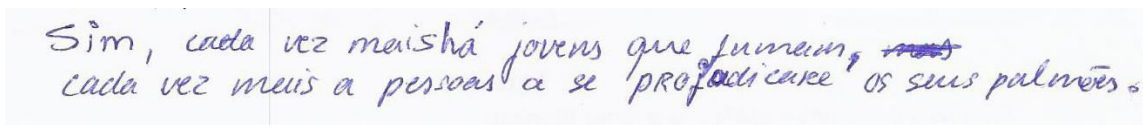 Sim, cada vez mais há jovens que fumam,
cada vez mais a pessoas a se projudicare os seus palmões.